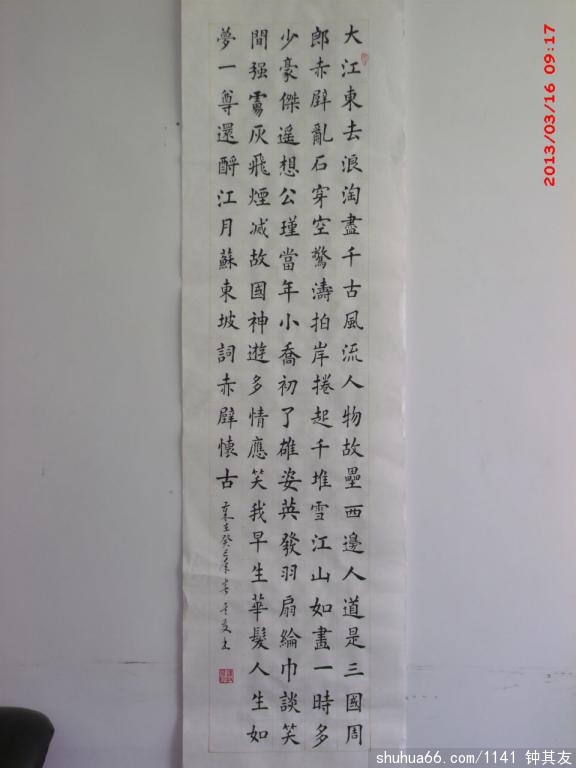 大江東去浪淘盡千古風流人物故壘西邊人道是三國周
郎赤壁亂石穿空驚濤拍岸捲起千堆雪江山如畫一時多
少豪傑遥想公瑾當年小喬初了雄姿英發羽扇綸巾談笑
間强虜灰飛煙减故國神遊多情應笑我早生華髮人生如
夢一尊還酹江月蘇東坡詞赤壁懷古 癸巳
2013/03/16 09:17
shuhua66.com/1141 钟其友